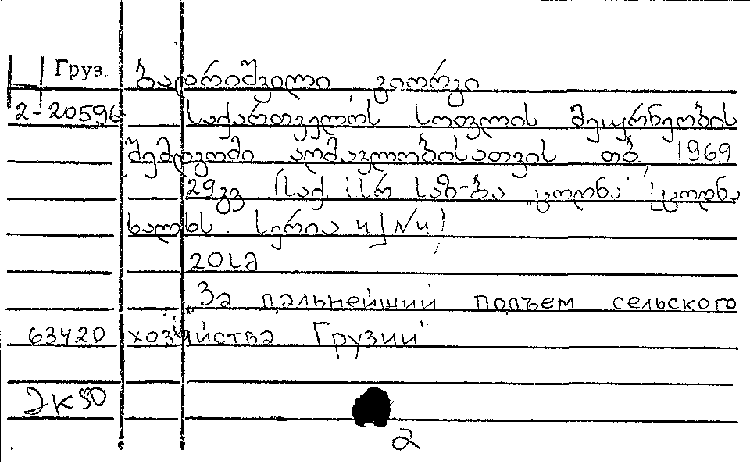 Груз. ბადრიშვილი გიორგი
2-20596 საქართველოს სოფლის მეურნეობის
შემდგომი აღმავლობისათვის თბ 1969
29გვ საქ სსრ საზ-ბა "ცოდნა" ცოდნა
ხალხს. სერია 4 N4
20სმ
За дальнейший подъем сельского
63420 хозяйства Грузии
2к50
2